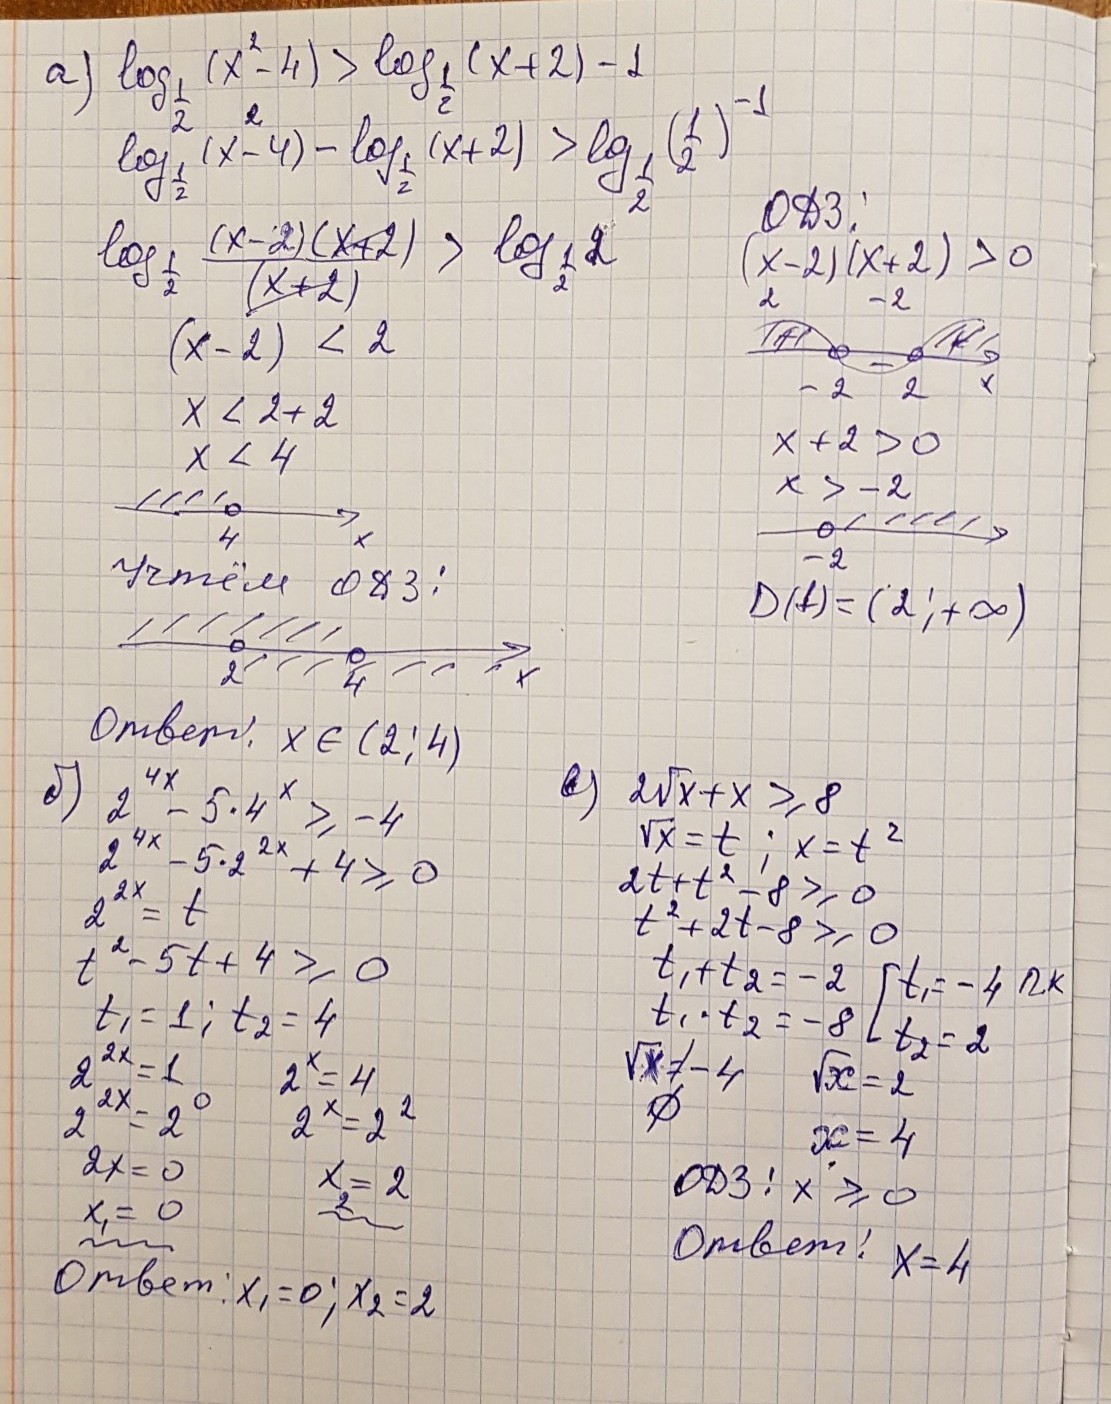 а) log_{1/2} (x² - 4) > log_{1/2} (x + 2) - 1
log_{1/2} (x² - 4) - log_{1/2} (x + 2) > log_{1/2} (1/2)^{-1}
log_{1/2} (x - 2)(x + 2) / (x + 2) > log_{1/2} 2
(x - 2) < 2
x < 2 + 2
x < 4
4 x
Учтём ОДЗ:
2 4 x
Ответ: x ∈ (2; 4)
ОДЗ:
(x - 2)(x + 2) > 0
2 -2
-
-2 2 x
x + 2 > 0
x > -2
-2
D(f) = (2; +∞)
б) 2^{4x} - 5·4^x ⩾ -4
2^{4x} - 5·2^{2x} + 4 ⩾ 0
2^{2x} = t
t² - 5t + 4 ⩾ 0
t₁ = 1; t₂ = 4
2^{2x} = 1 2^x = 4
2^{2x} = 2^0 2^x = 2²
2x = 0 x₂ = 2
x₁ = 0
Ответ: x₁ = 0; x₂ = 2
в) 2√x + x ⩾ 8
√x = t; x = t²
2t + t² - 8 ⩾ 0
t² + 2t - 8 ⩾ 0
t₁ + t₂ = -2 [ t₁ = -4 ПК
t₁ · t₂ = -8 t₂ = 2
√x ≠ -4 √x = 2
∅ x = 4
ОДЗ: x ⩾ 0
Ответ: x = 4